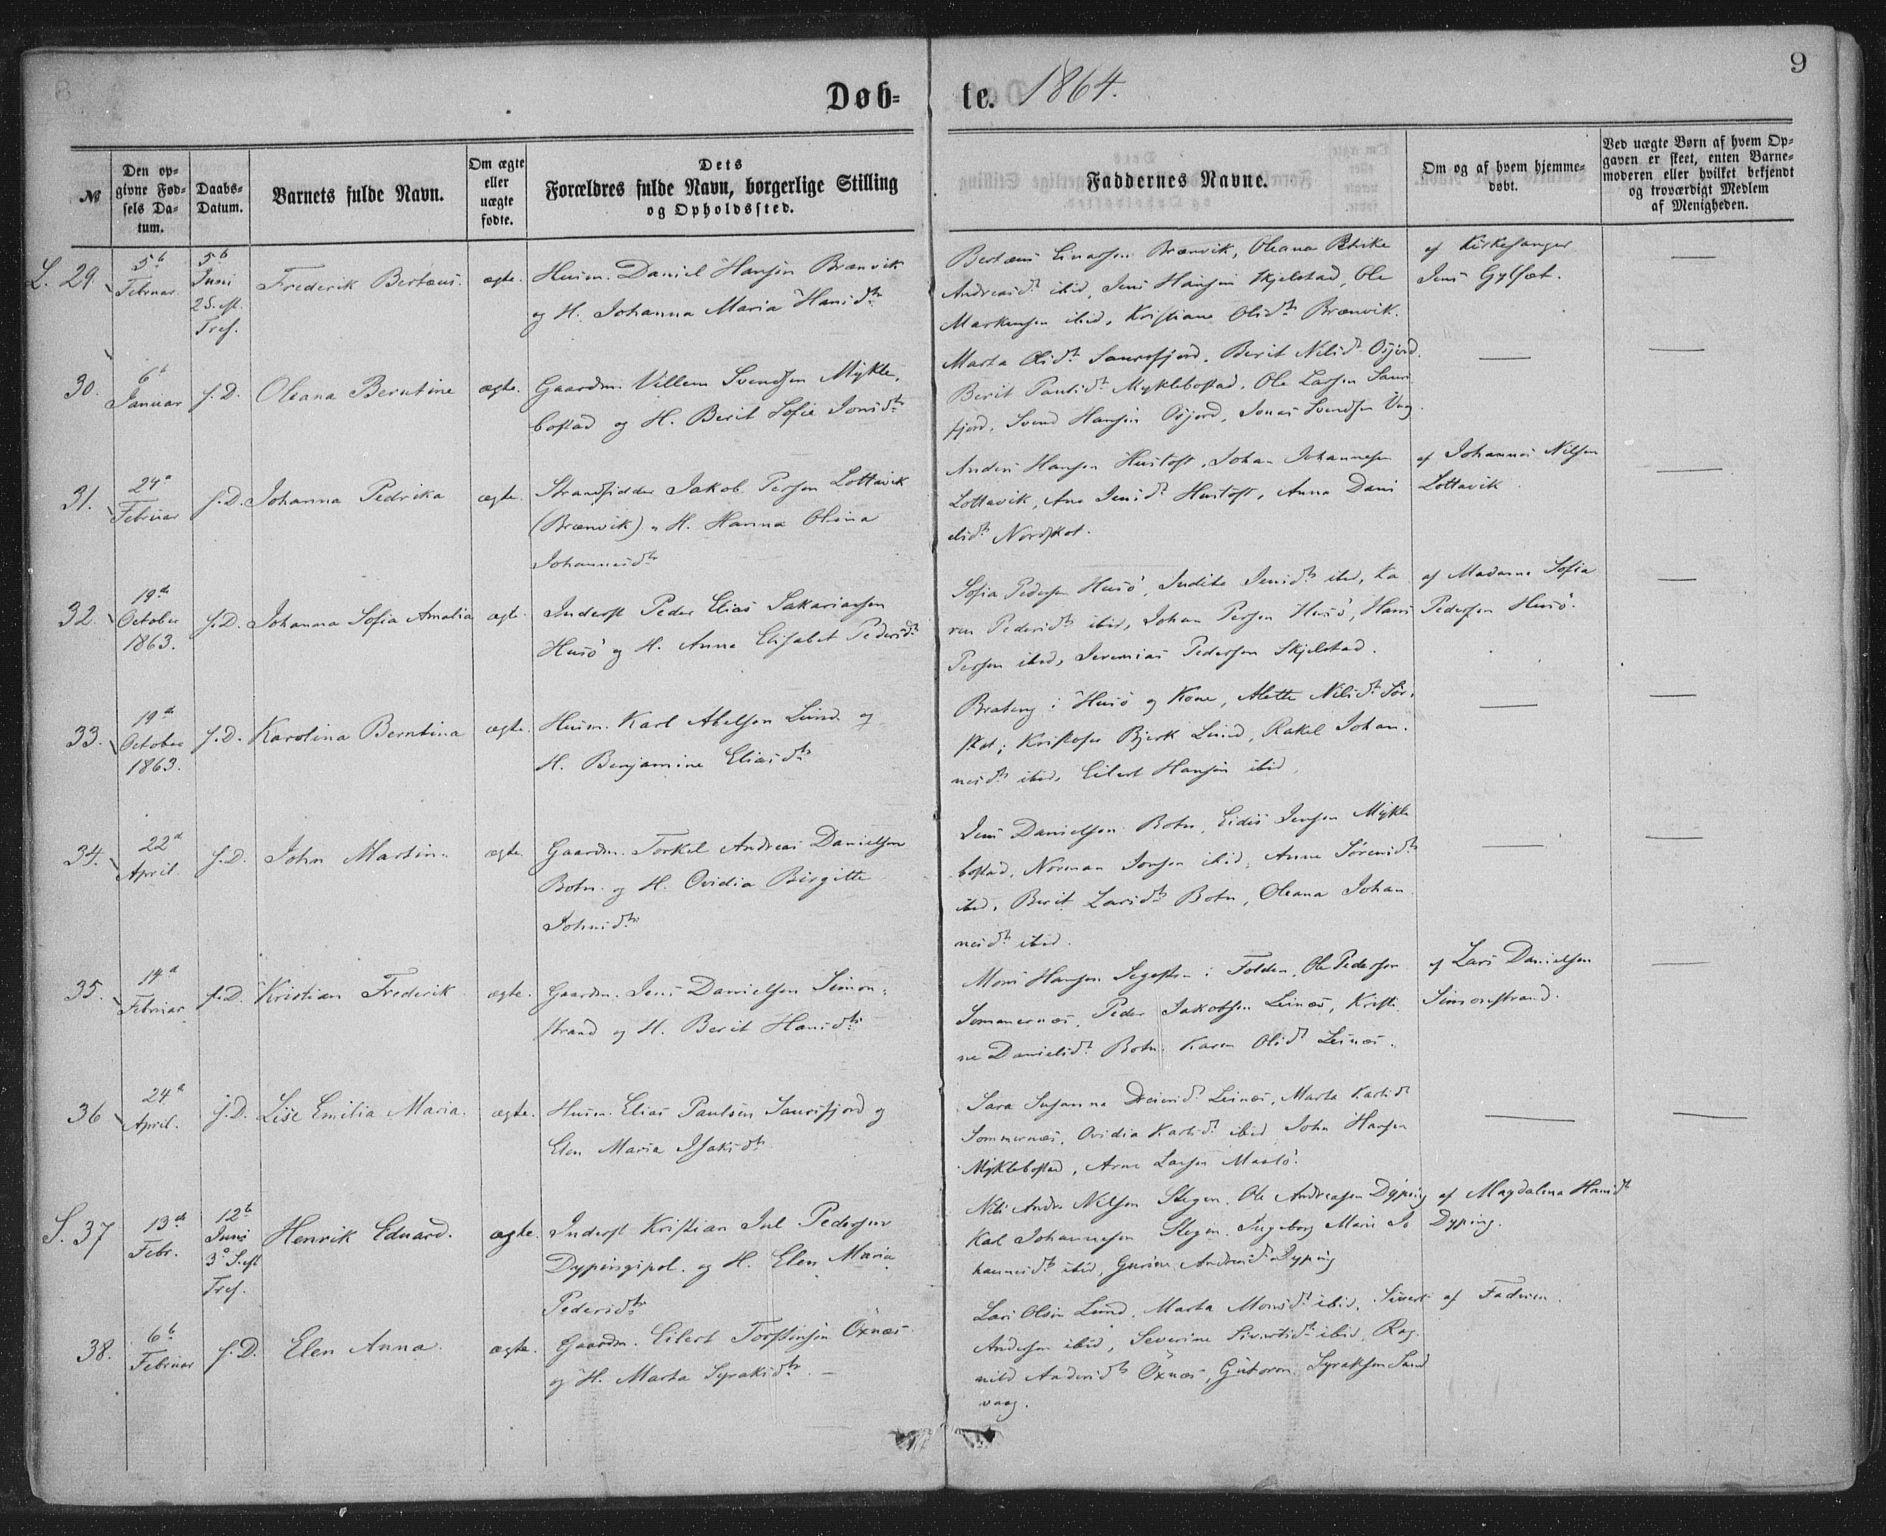 9
Døb= te. 1864.
№
Den op-
givne Fød-
sels Da-
tum.
Daabs-
Datum.
Barnets fulde Navn.
Om ægte
eller
uægte
fødte.
Dets
Forældres fulde Navn, borgerlige Stilling
og Opholdssted.
Faddernes Navne.
Om og af hvem hjemme-
døbt.
Ved uægte Børn af hvem Op-
gaven er skeet, enten Barne-
moderen eller hvilket bekjendt
og troværdigt Medlem
af Menigheden.
L. 29.
5t
Februar
5t
Juni
2 S. e.
Tref.
Frederik Bertæus.
ægte.
Husm. Daniel Hansen Brænvik
og H. Johanna Maria Hansdtr
Bertæus Brænvik, Oleana
Andreasdt ibid, Jens Hansen Skjelstad, Ole
Markussen ibid, Kristiane Olsdtr Brænvik.
af Kirkesanger
Jens Gylseth.
—
30.
6t
Januar
s. D.
Oleana Berntine
ægte.
Gaardm. Villem Svendsen Mykle-
bostad og H. Berit Sofie Jonsdtr
Marta Olsdt Saursfjord, Berit Nilsdt Osjord.
Berit Paulsdt Myklebostad, Ole Larsen Saurs
fjord, Svend Hansen Osjord, Jonas Svendsen
fjord.
—
—
31.
24a
Februar
s. D.
Johanna Pedrika
ægte.
Strandsidder Jakob Persen Lottavik
(Brænvik) " H. Hanna Olina
Johannesdtr
Anders Hansen Hustoft, Johan Johannesen
Lottavik, Ane Jensdt Hustoft, Anna Dani
elsdtr Nordskot.
af Johannes Nilsen
Lottavik.
—
32.
19de
October
1863.
s. D.
Johanna Sofia Amalia
ægte.
Inderst Peder Elias Sakariassen
Husö og H. Anne Elisabet Pedersdtr
Sofia Pedersen Husö, Judithe Jensdtr ibid, Ka
ren Pedersdtr ibid, Johan Persen Husö, Hans
Persen ibid, Jeremias Pedersen Skjelstad.
af Madame Sofia
Pedersen Husö.
—
33.
19de
October
1863.
s. D.
Karolina Berntina
ægte.
Husm. Karl Abelsen Lund og
H. Benjamine Eliasdtr
Brateng i Husö og Kone, Alette Nilsdt Sör-
skot, Kristofer Bjerk Lund, Rakel Johan-
nesdtr ibid, Eilert Hansen ibid.
—
—
34.
22d
April
s. D.
John Martin.
ægte.
Gaardm. Torkel Andreas Danielsen
Botn og H. Ovidia Birgitte
Johnsdtr
Jens Danielsen Botn, Eidis Jensen Mykle
bostad, Norman Jonsen ibid, Anne Sörensdtr
ibid, Berit Larsdtr Botn, Oleana Johan
nesdtr ibid.
—
—
35.
14d
Februar
s. D.
Kristian Frederik
ægte.
Gaardm. Jens Danielsen Simon-
strand og H. Berit Hansdtr
Mons Hansen i Folden, Ole Pedersen
Sommernæs, Peder Jakobsen Leinæs, Kristi
ne Danielsdt Botn, Karen Olsdt Leinæs.
af Lars Danielsen
Simonstrand.
—
36
24d
April.
s. D.
Lise Emilia Maria.
ægte.
Husm. Elias Paulsen Saursfjord og
Elen Maria Isaksdtr
Sara Susanna Leinæs, Marta Karlsdt
Sommernæs, Ovidia Karlsdt ibid, John Hansen
Myklebostad, Arne Larsen Maalö.
—
—
S. 37
13de
Febr.
12t
Juni
3 S. e.
Tref.
Henrik Eduard.
ægte.
Inderst Kristian Jul Pedersen
Dypingpol. og H. Elen Maria
Pedersdtr
Nils Andr. Nilsen Stegen, Ole Andreasen Dyping
Karl Johannesen Stegen, Ingeborg Marie Jo
hannesdtr ibid, Gurine Andersdt Dyping
af Magdalena Hansdt
Dyping.
38.
6t
Februar
s. D.
Elen Anna.
ægte.
Gaardm. Eilert Torstensen Öxnæs
og H. Marta Syraksdtr. —
Lars Olsen Lund, Marta Monsdt ibid, Sivert
Andersen ibid, Severine Sivertsdt ibid, Rag-
nild Andersdt Öxnæs, Guttorm Syraksen Sand
vaag.
af Faderen.